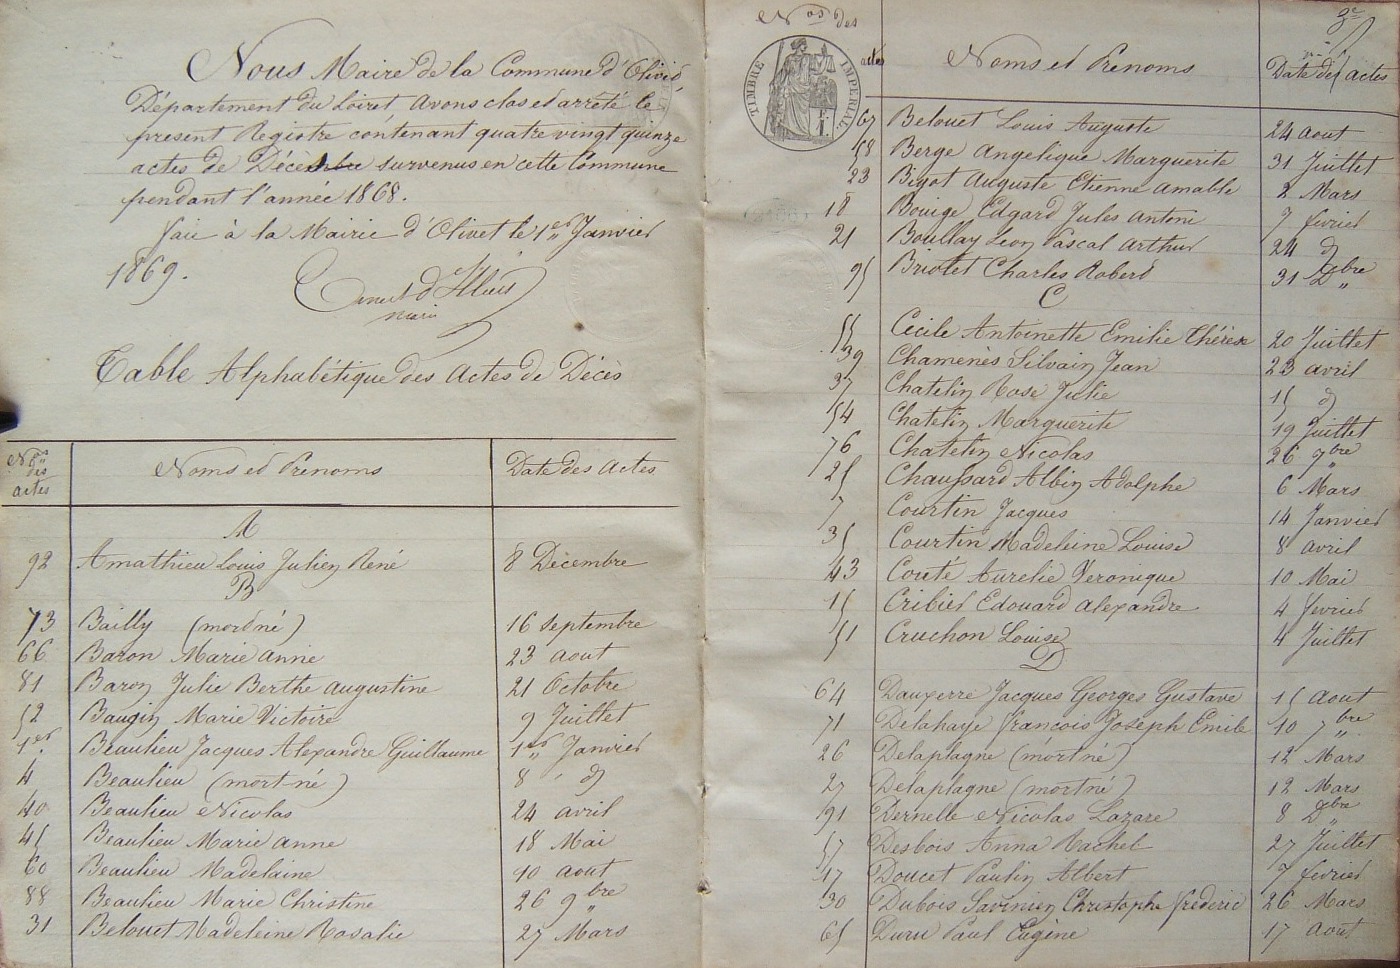 Nous Maire de la Commune d'Olivet
Département du Loiret avons clos et arrêté le
present Registre contenant quatre vingt quinze
actes de Décès survenus en cette Commune
pendant l'année 1868.
fait à la Mairie d'Olivet le 1er Janvier
1869.
maire
Table Alphabétique des Actes de Décès
Nos des actes Noms et Prenoms Date des Actes
A
92 Amathieu Louis Julien René 8 Décembre
B
73 Bailly (mort né) 16 Septembre
66 Baron Marie Anne 23 aout
81 Baron Julie Berthe Augustine 21 Octobre
52 Baugin Marie Victoire 9 Juillet
1er Beaulieu Jacques Alexandre Guillaume 1er Janvier
4 Beaulieu (mort-né) 8 d
40 Beaulieu Nicolas 24 avril
45 Beaulieu Marie Anne 18 Mai
60 Beaulieu Madelaine 10 aout
88 Beaulieu Marie Christine 26 9bre
31 Belouet Madeleine Rosalie 27 Mars
3e
Nos des actes Noms et Prenoms Date des actes
TIMBRE IMPERIAL
67 Belouet Louis Auguste 24 aout
58 Berge Angelique Marguerite 31 Juillet
23 Bigot Auguste Etienne Amable 2 Mars
18 Bouige Edgard Jules Antoni 7 fevrier
21 Boullay Leon Pascal Arthur 24 d
95 Briolet Charles Robert 31 Xbre
C
55 Cecile Antoinette Emilie Thérèse 20 Juillet
39 Chamenès Silvain Jean 23 avril
37 Chatelin Rose Julie 15 d
54 Chatelin Marguerite 19 Juillet
76 Chatelin Nicolas 26 7bre
25 Chaussard Albin Adolphe 6 Mars
7 Courtin Jacques 14 Janvier
35 Courtin Madeleine Louise 8 avril
43 Couté Aurelie Veronique 10 Mai
15 Cribier Edouard Alexandre 4 fevrier
51 Cruchon Louise 4 Juillet
D
64 Dauxerre Jacques Georges Gustave 15 Aout
71 Delahaye francois Joseph Emile 10 7bre
26 Delaplagne (mort né) 12 Mars
27 Delaplagne (mort né) 12 Mars
91 Dernelle Nicolas Lazare 8 Xbre
57 Desbois Anna Rachel 27 Juillet
17 Doucet Paulin Albert 7 fevrier
30 Dubois Savinien Christophe frederic 26 Mars
65 Duru Paul Eugène 17 Aout